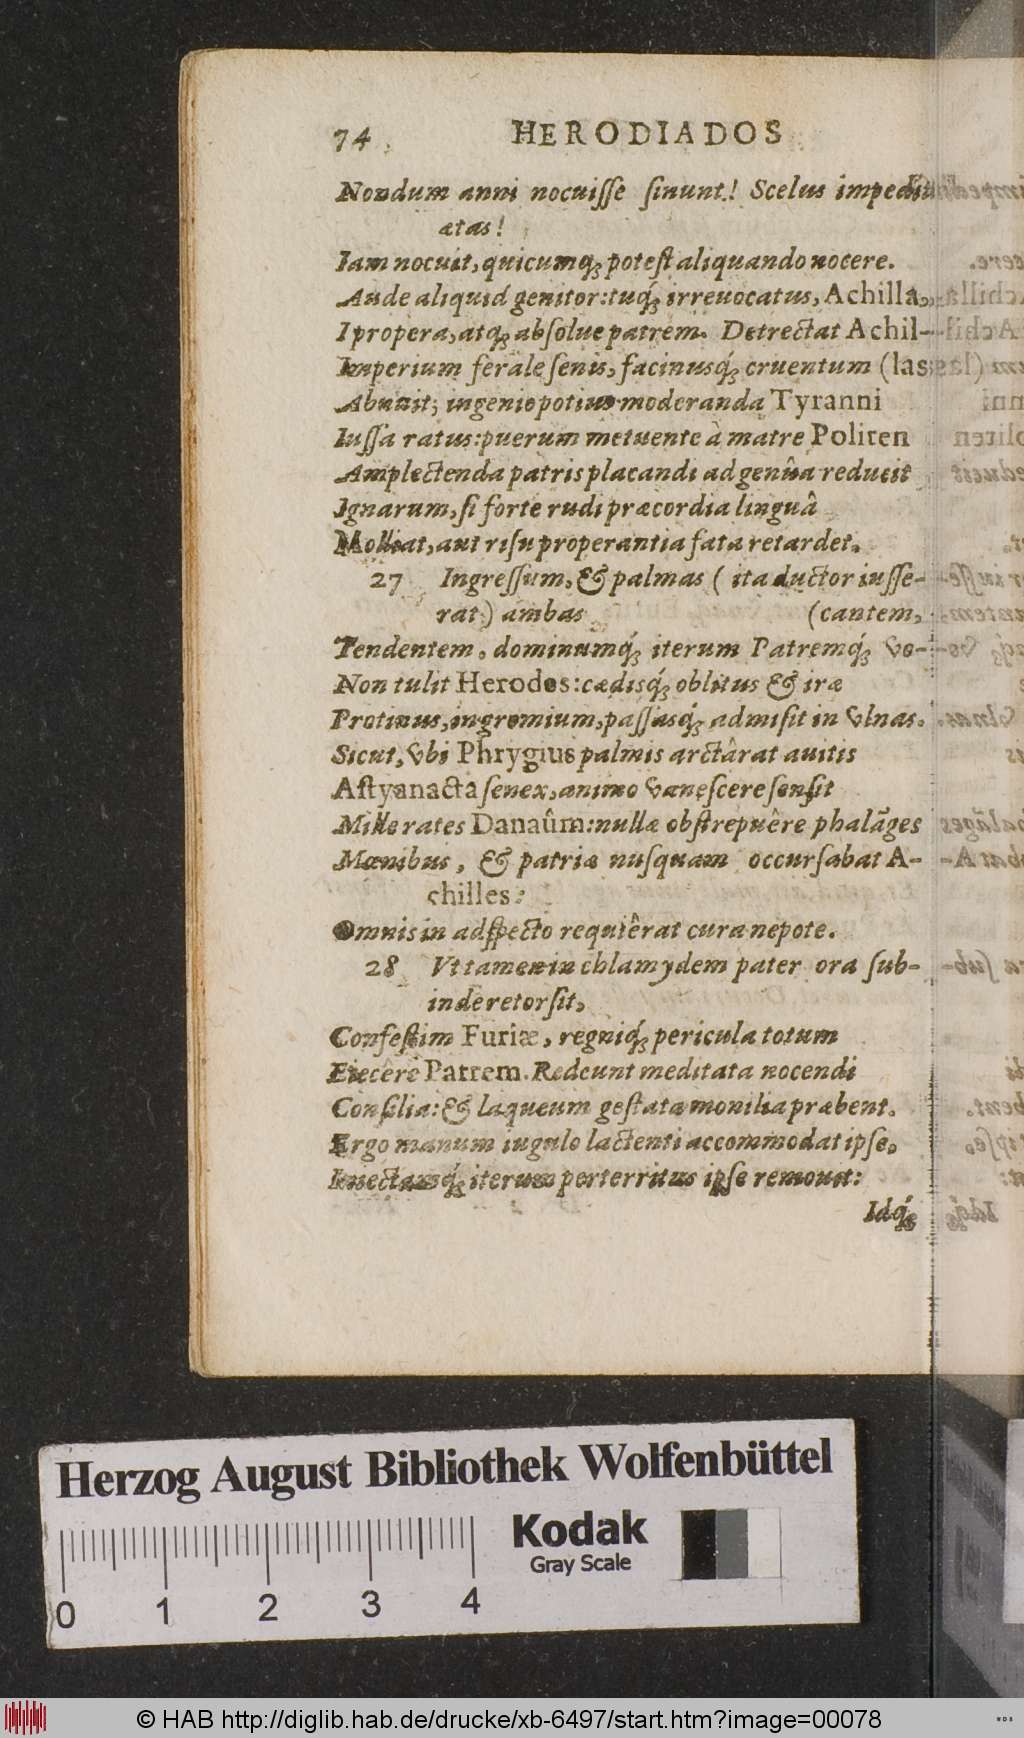 74 HERODIADOS
Nondum anni nocuiſſe ſinunt! Scelus impedit
ætas!
Iam nocuit, quicumq́ꝫ poteſt aliquando nocere.
Aude aliquid genitor: tuq́ꝫ irreuocatus, Achilla,
I propera, atq́ꝫ abſolue patrem. Detrectat Achil-
Imperium ferale ſenis, facinusq́ꝫ cruentum (las
Abnuit; ingenio potius moderanda Tyranni
Iuſſa ratus: puerum metuente à matre Politen
Amplectenda patris placandi ad genûa reducit
Ignarum, ſi forte rudi præcordia linguâ
Molliat, aut riſu properantia fata retardet.
27 Ingreſſum, & palmas ( ita ductor iuſſe-
rat ) ambas (cantem,
Tendentem, dominumq́ꝫ iterum Patremq́ꝫ vo-
Non tulit Herodes: cædisq́ꝫ oblitus & iræ
Protinus, in gremium, paſſasq́ꝫ admiſit in vlnas.
Sicut, vbi Phrygius palmis arctârat auitis
Aſtyanacta ſenex, animo vaneſcere ſenſit
Mille rates Danaûm: nullæ obſtrepuêre phalãges
Mœnibus, & patriæ nuſquam occurſabat A-
chilles:
Omnis in adſpecto requiêrat cura nepote.
28 Vt tamen in chlamydem pater ora ſub-
inde retorſit,
Confeſtim Furiæ, regniq́ꝫ pericula totum
Eiecere Patrem. Redeunt meditata nocendi
Conſilia: & laqueum geſtata monilia præbent.
Ergo manum iugulo lactenti accommodat ipſe,
Iniectamq́ꝫ iterum perterritus ipſe remouit:
Idq́ꝫ
Herzog August Bibliothek Wolfenbüttel
Kodak
Gray Scale
0 1 2 3 4
© HAB http://diglib.hab.de/drucke/xb-6497/start.htm?image=00078